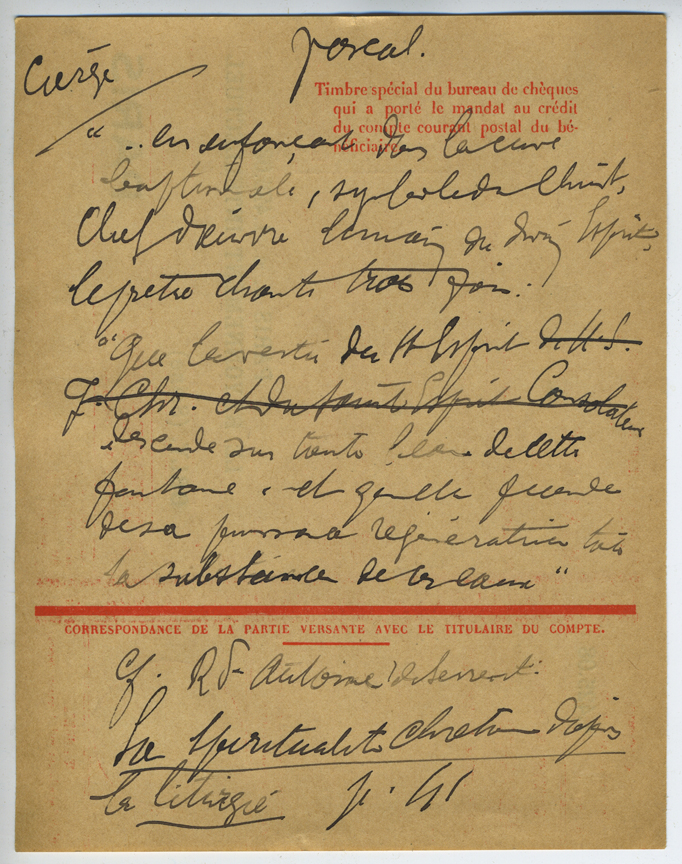 Cierge pascal.
Timbre spécial du bureau de chèques
qui a porté le mandat au crédit
du compte courant postal du bé-
néficiaire.
"... en enfonçant dans la cuve
baptismale, symbole du Christ,
Chef d'œuvre du Esprit,
le prêtre chante trois fois :
"Que la vertu du St Esprit de N. S.
J. Chr. et du Saint Esprit Consolateur
descende sur toute l'eau de cette
fontaine, et qu'elle féconde
de sa puissance régénératrice toute
la substance de ces eaux"
CORRESPONDANCE DE LA PARTIE VERSANTE AVEC LE TITULAIRE DU COMPTE.
cf. R. P. Antoine de Serent.
La Spiritualité Chrétienne d'après
la liturgie p. 41